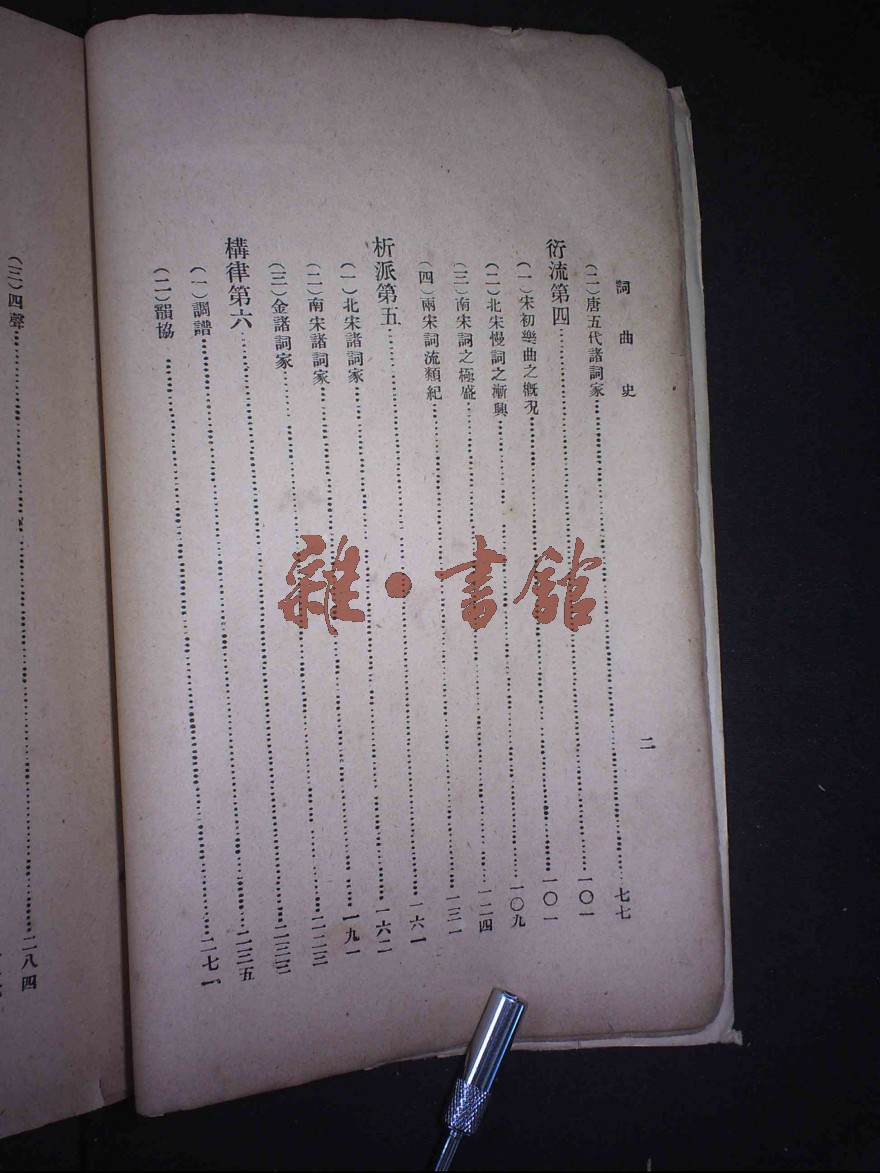 詞曲史 二
(二)唐五代諸詞家……七七
衍流第四……一〇一
(一)宋初樂曲之概況……一〇一
(二)北宋慢詞之漸興……一〇九
(三)南宋詞之極盛……一二四
(四)兩宋詞流類紀……一三一
析派第五……一六一
(一)北宋諸詞家……一六二
(二)南宋諸詞家……一九一
(三)金諸詞家……二二三
構律第六……二三三
(一)調譜……二三五
(二)韻協……二七一
(三)四聲……二八四
雜·書館